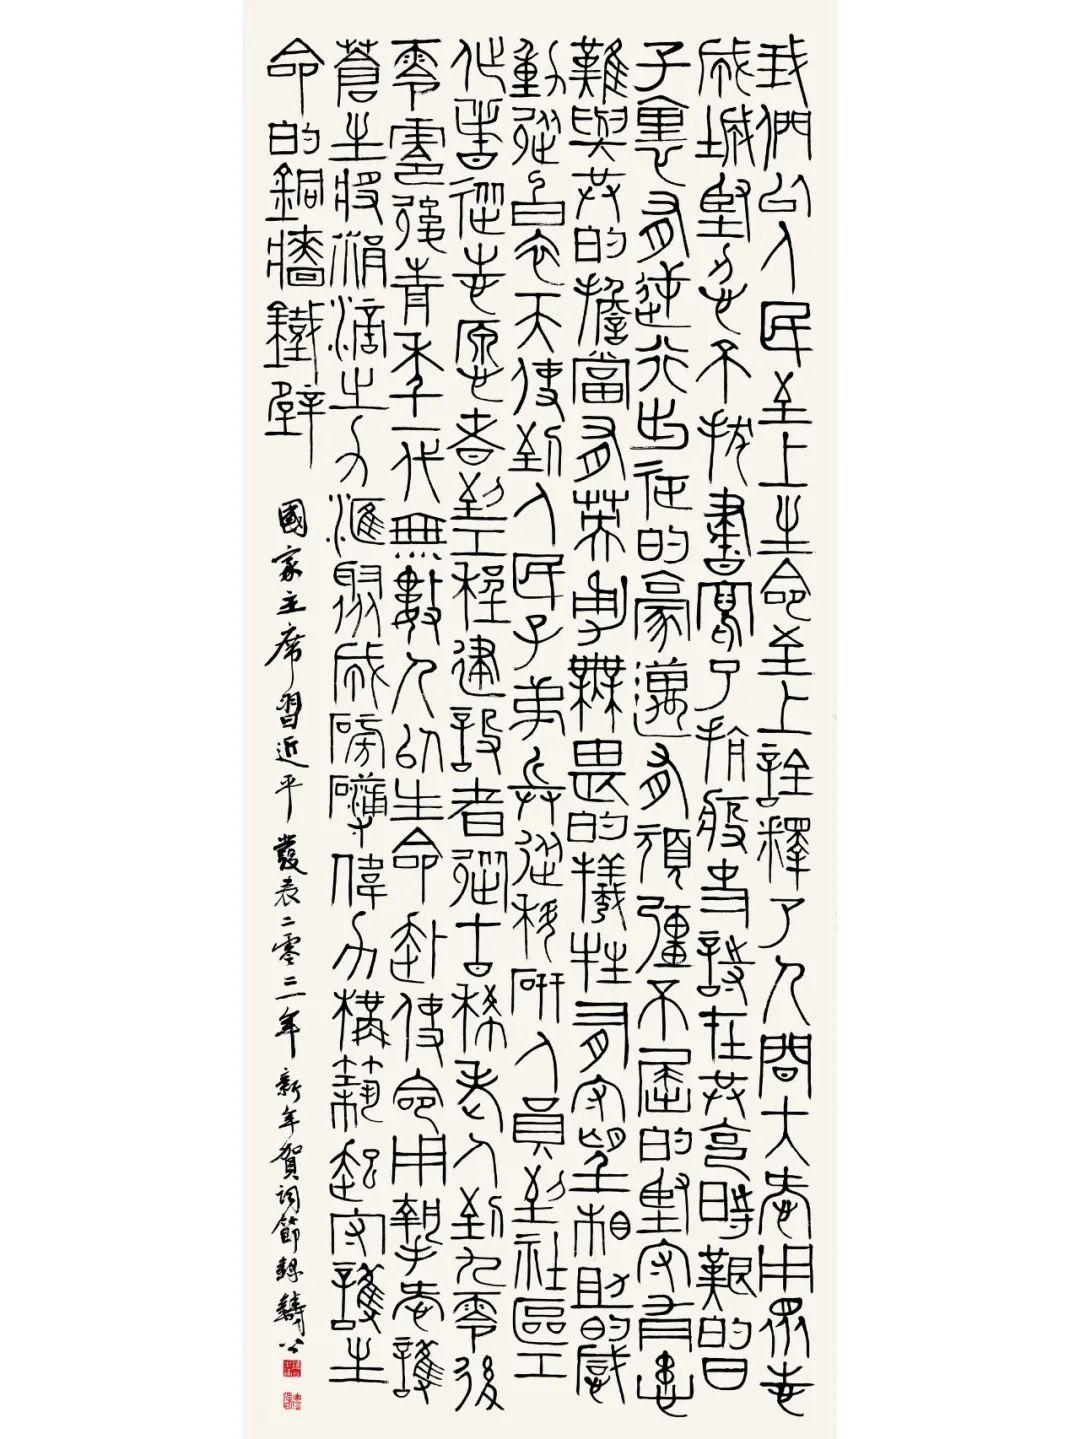 我們以人民至上生命至上詮釋了人間大愛用眾志
成城堅忍不拔書寫了抗疫史詩在共克時艱的日
子裏有逆行出征的豪邁有頑強不屈的堅守有患
難與共的擔當有英勇無畏的犧牲有守望相助的感
動從白衣天使到人民子弟兵從科研人員到社區工
作者從志願者到工程建設者從古稀老人到九零後
零零後青年一代無數人以生命赴使命用摯愛護
蒼生將涓滴之力匯聚成磅礴偉力構築起守護生
命的銅牆鐵壁
國家主席習近平發表二零二一年新年賀詞節錄鑄公